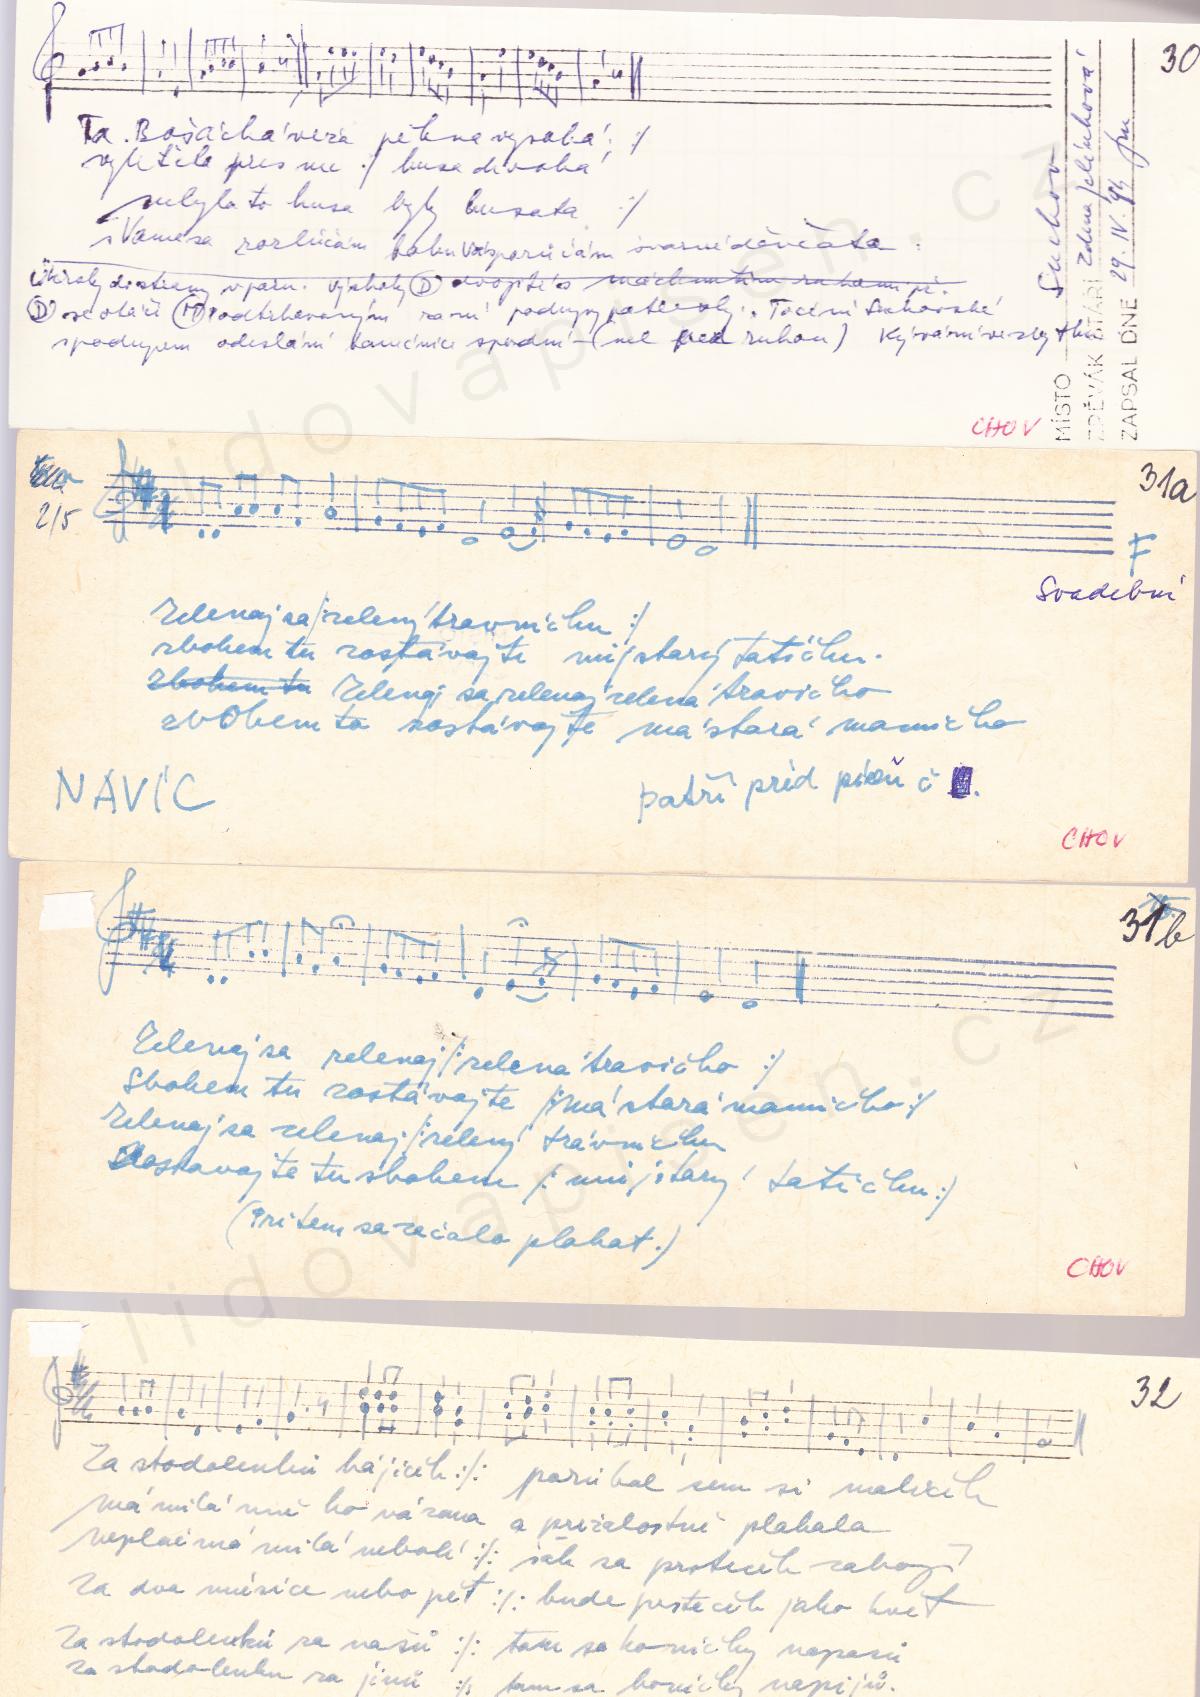 30
Ta Bošácká věža pěkna vysoká :/
vyletěla pres ne :/ husa divoká
nebyla to husa byly husata :/
s Vama sa rozlúčám bohu Vás porúčám švarné děvčata.
Úkroky do strany v páru.
(D) se otáčí (H) podtrhávaným
MÍSTO Suchov
ZPĚVÁK ŘTÁŘI Zdena Jelínková
ZAPSAL DNE 29. IV. 94
CHOV
31a
2/5
F
Svadební
Zelenaj sa /: zelený trávníčku :/
zbohem tu zostávajte můj starý tatíčku.
Zbohem tu Zelenaj sa, zelenaj zelená travičko
zbohem tu zostávajte má stará mamičko
NAVÍC
patří před píseň č
CHOV
31b
Zelenaj sa zelenaj /: zelená travičko :/
Sbohem tu zostávajte /: má stará mamičko :/
Zelenaj sa zelenaj /: zelený trávníčku
Zostavajte tu sbohem /: můj starý tatíčku :/
(Pritem sa začalo plakat.)
CHOV
32
Za stodolenkú hájíček :/: porúbal sem si malíček
má milá mně ho vázala a přežalostně plakala
neplač má milá nebolí :/: šak sa prstíček zahojí
Za dva měsíce nebo pět :/: bude prstíček jako květ
Za stodolenkú za našú :/: tam sa koníčky napasú
za stodolenku za jinú :/: tam sa koníčky napijú.
lidovapisen.cz
lidovapisen.cz